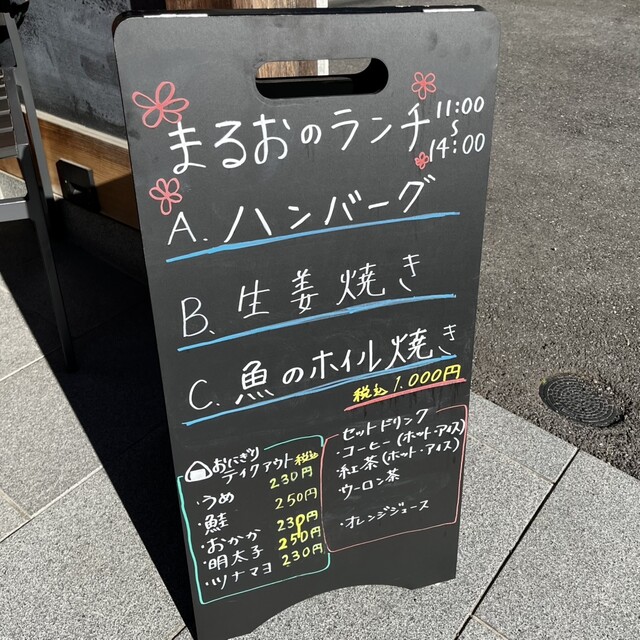 まるおのランチ 11:00
~
14:00
A. ハンバーグ
B. 生姜焼き
C. 魚のホイル焼き
税込 1.000円
おにぎり
テイクアウト 税込
・うめ 230円
・鮭 250円
・おかか 230円
・明太子 250円
・ツナマヨ 230円
セットドリンク
・コーヒー (ホット・アイス)
・紅茶 (ホット・アイス)
・ウーロン茶
・オレンジジュース